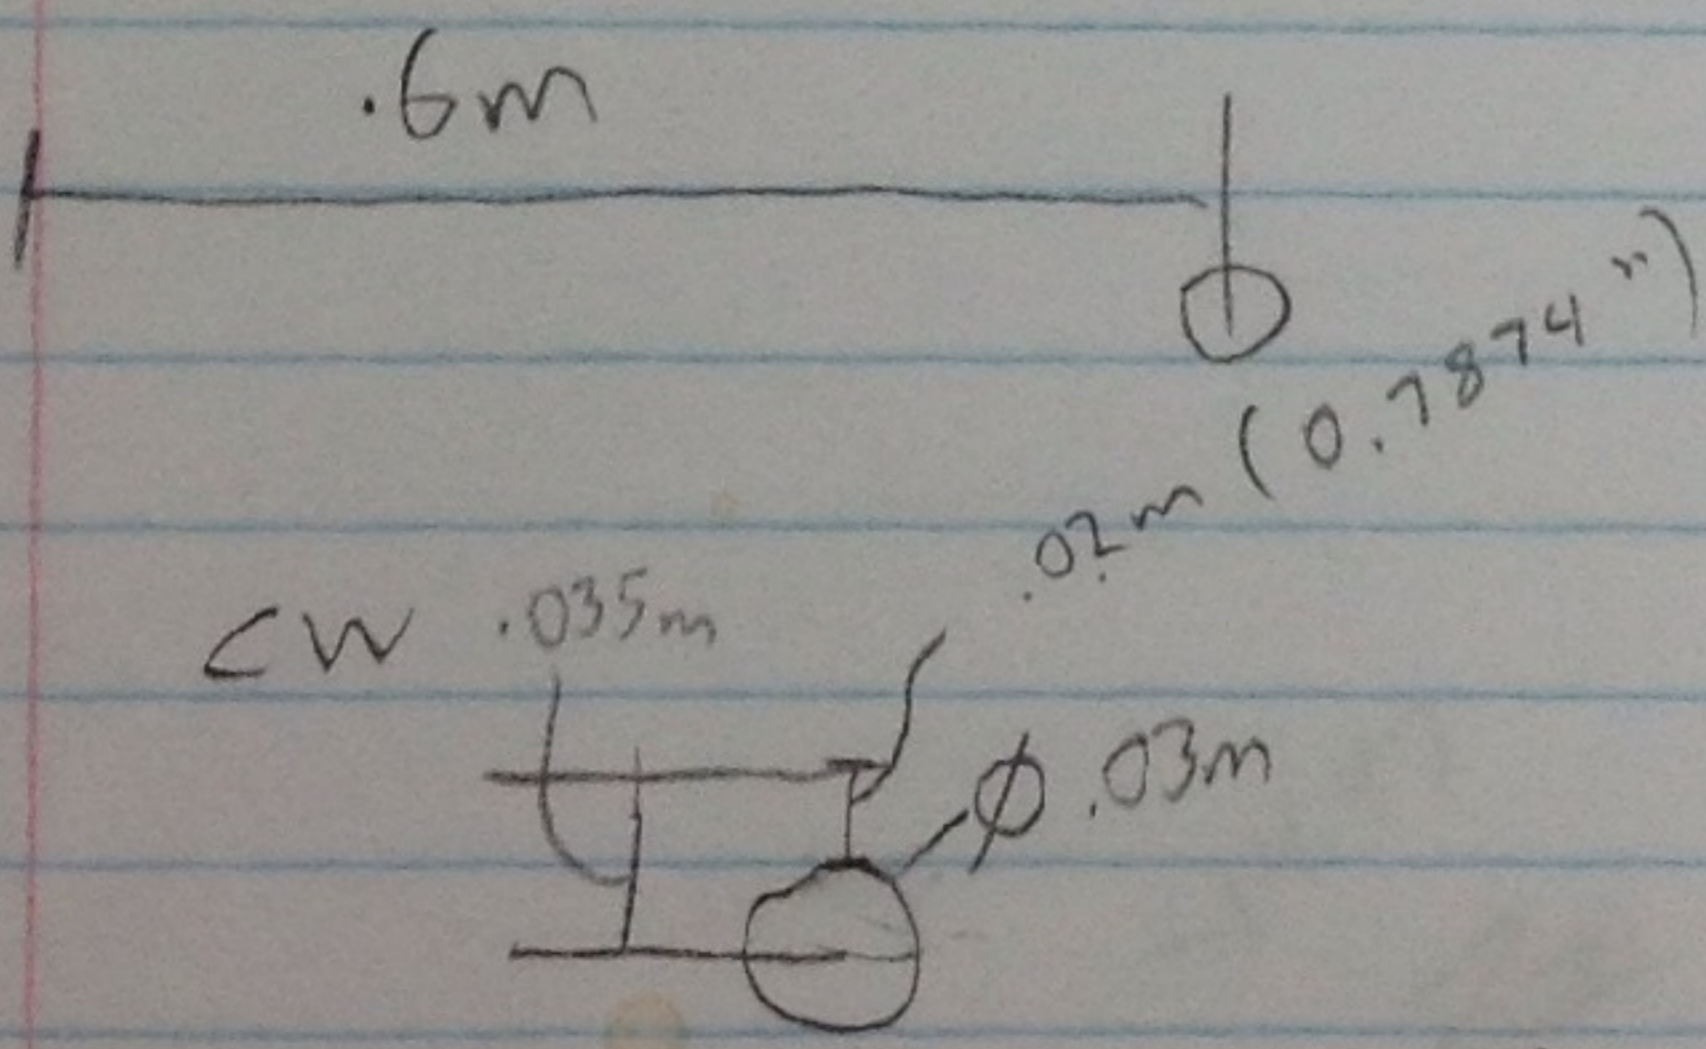 .6m
.02m (0.7874")
CW .035m
Ø .03m